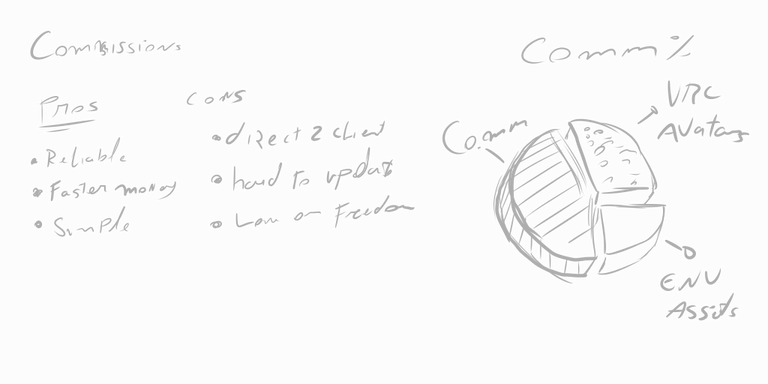 Commissions
Pros
• Reliable
• Faster money
• Simple
Cons
• direct 2 client
• hard to update
• Low on Freedom
Comm %
Comm
VRC
Avatars
ENV
Assets